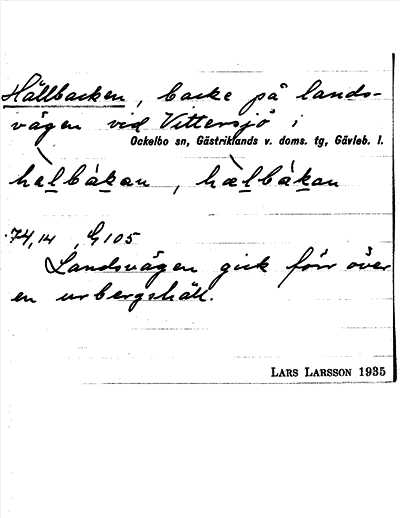 Hällbacken, backe på lands-
vägen vid Vittersjö i
Ockelbo sn, Gästriklands v. doms. tg, Gävleb. l.
hælbákan, hælbákan
74,14, G 105
Landsvägen gick förr över
en urbergshäll.
LARS LARSSON 1935